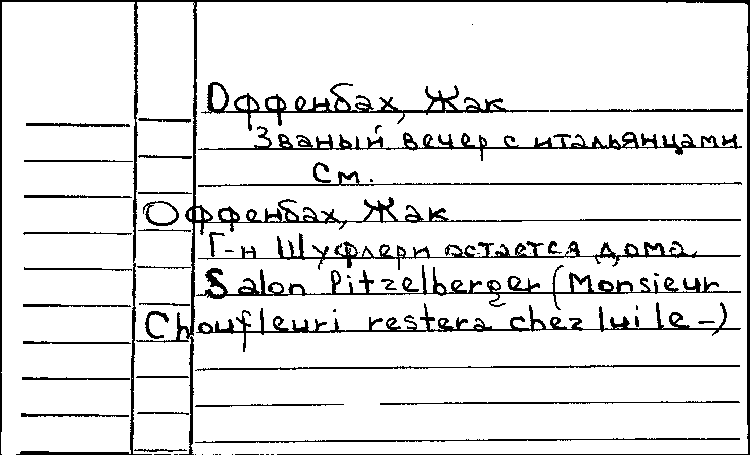 Оффенбах, Жак
Званый вечер с итальянцами
См.
Оффенбах, Жак
Г-н Шуфлери остается дома.
Salon Pitzelberger (Monsieur
Choufleuri restera chez lui le –)